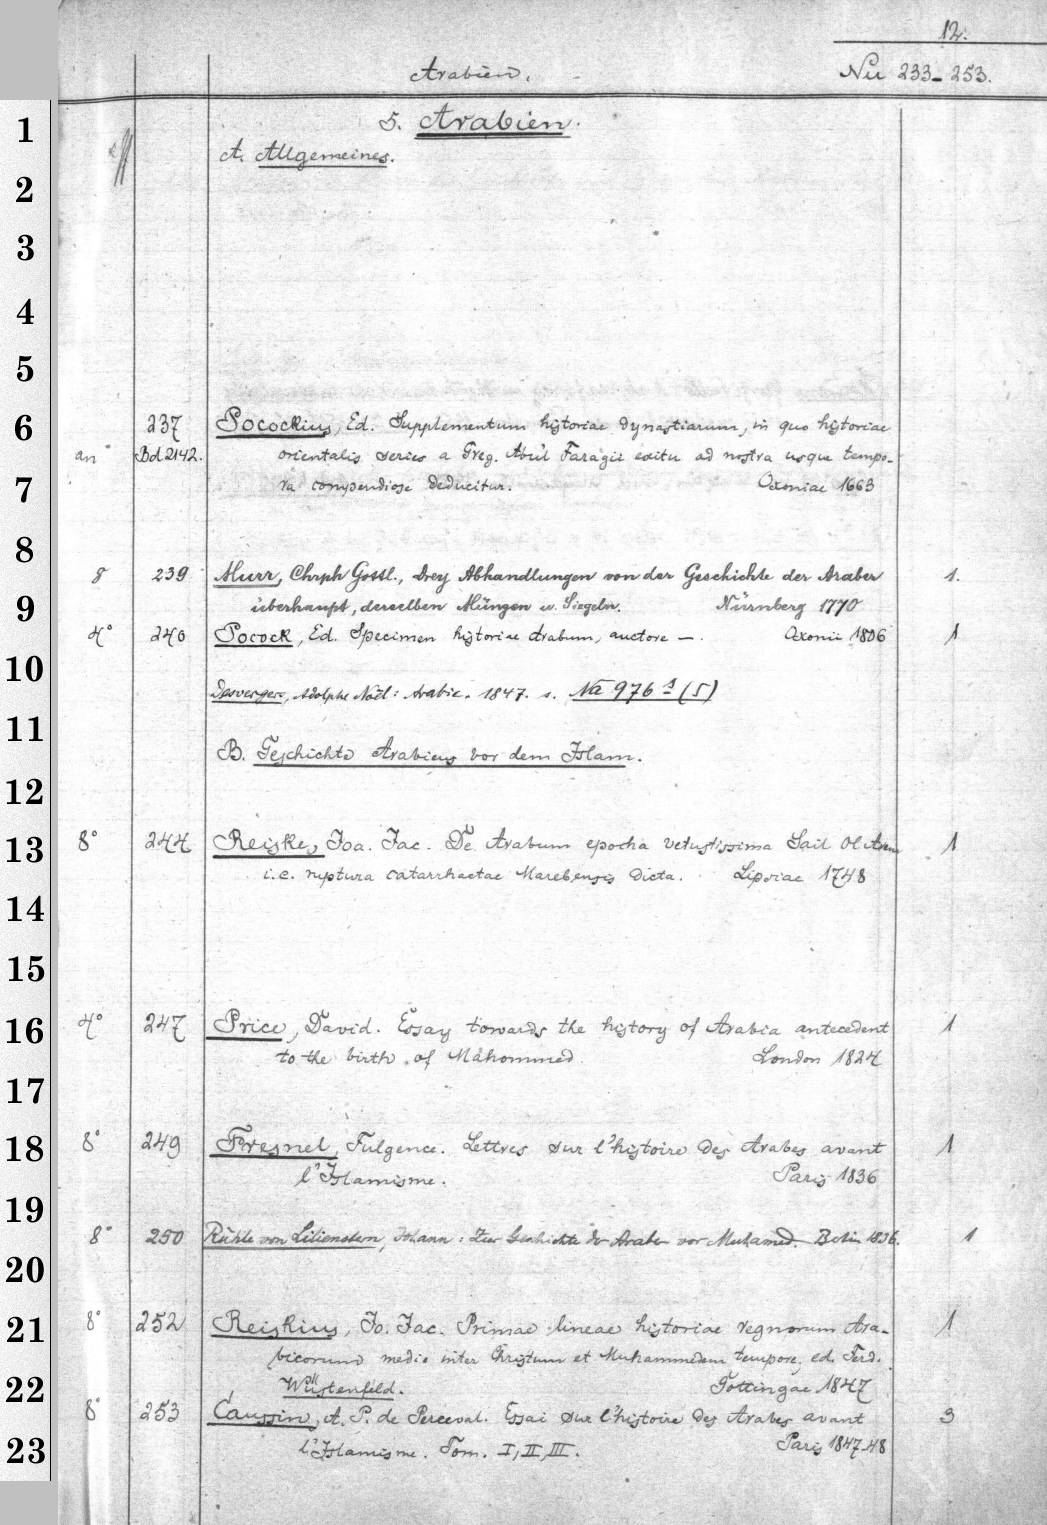 12.
Arabien. Nu 233-253.
1 5. Arabien.
A. Allgemeines.
2
3
4
5
6 237 Pocockius, Ed. Supplementum historiae dynastiarum, in quo historiae
an Bd 2142. orientalis series a Greg. Abul Faragii exitu ad nostra usque tempo-
7 ra compendiose deducitur. Oxoniae 1663
8
8 239 Murr, Chrph Gottl., Drey Abhandlungen von der Geschichte der Araber 1.
9 überhaupt, derselben Münzen u. Siegeln. Nürnberg 1770
4° 240 Pocock, Ed. Specimen historiae Arabum, auctore —. Oxonii 1806 1
10
Desvergers, Adolphe Noël: Arabie. 1847. s. Na 976 s (5)
11
B. Geschichte Arabiens vor dem Islam.
12
13 8° 244 Reiske, Joa. Jac. De Arabum epocha vetustissima Sail Ol Arem 1
i.e. ruptura catarrhactae Marebensis dicta. Lipsiae 1748
14
15
16 4° 247 Price, David. Essay towards the history of Arabia antecedent 1
to the birth of Mahommed London 1824
17
18 8° 249 Fresnel, Fulgence. Lettres sur l'histoire des Arabes avant 1
l'Islamisme. Paris 1836
19
8° 250 Rühle von Lilienstern, Johann: Zur Geschichte der Araber vor Muhamed. Berlin 1836. 1
20
21 8° 252 Reiskius, Jo. Jac. Primae lineae historiae regnorum Ara- 1
bicorum medio inter Christum et Muhammedem tempore, ed. Ferd.
22 Wüstenfeld. Gottingae 1847
8° 253 Caussin, A. P. de Perceval. Essai sur l'histoire des Arabes avant 3
23 l'Islamisme. Tom. I, II, III. Paris 1847-48